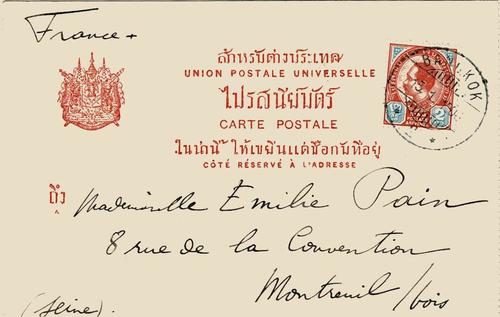 France
สำหรับต่างประเทศ
UNION POSTALE UNIVERSELLE
ไปรสนียบัตร์
CARTE POSTALE
ในน่านี้ ให้เขยีนแต่ชื่อกับที่อยู่
CÔTÉ RÉSERVÉ À L'ADRESSE
BANGKOK
2
ถึง
Mademoiselle Emilie Pain
8 rue de la Convention
Montreuil /bois
(Seine).